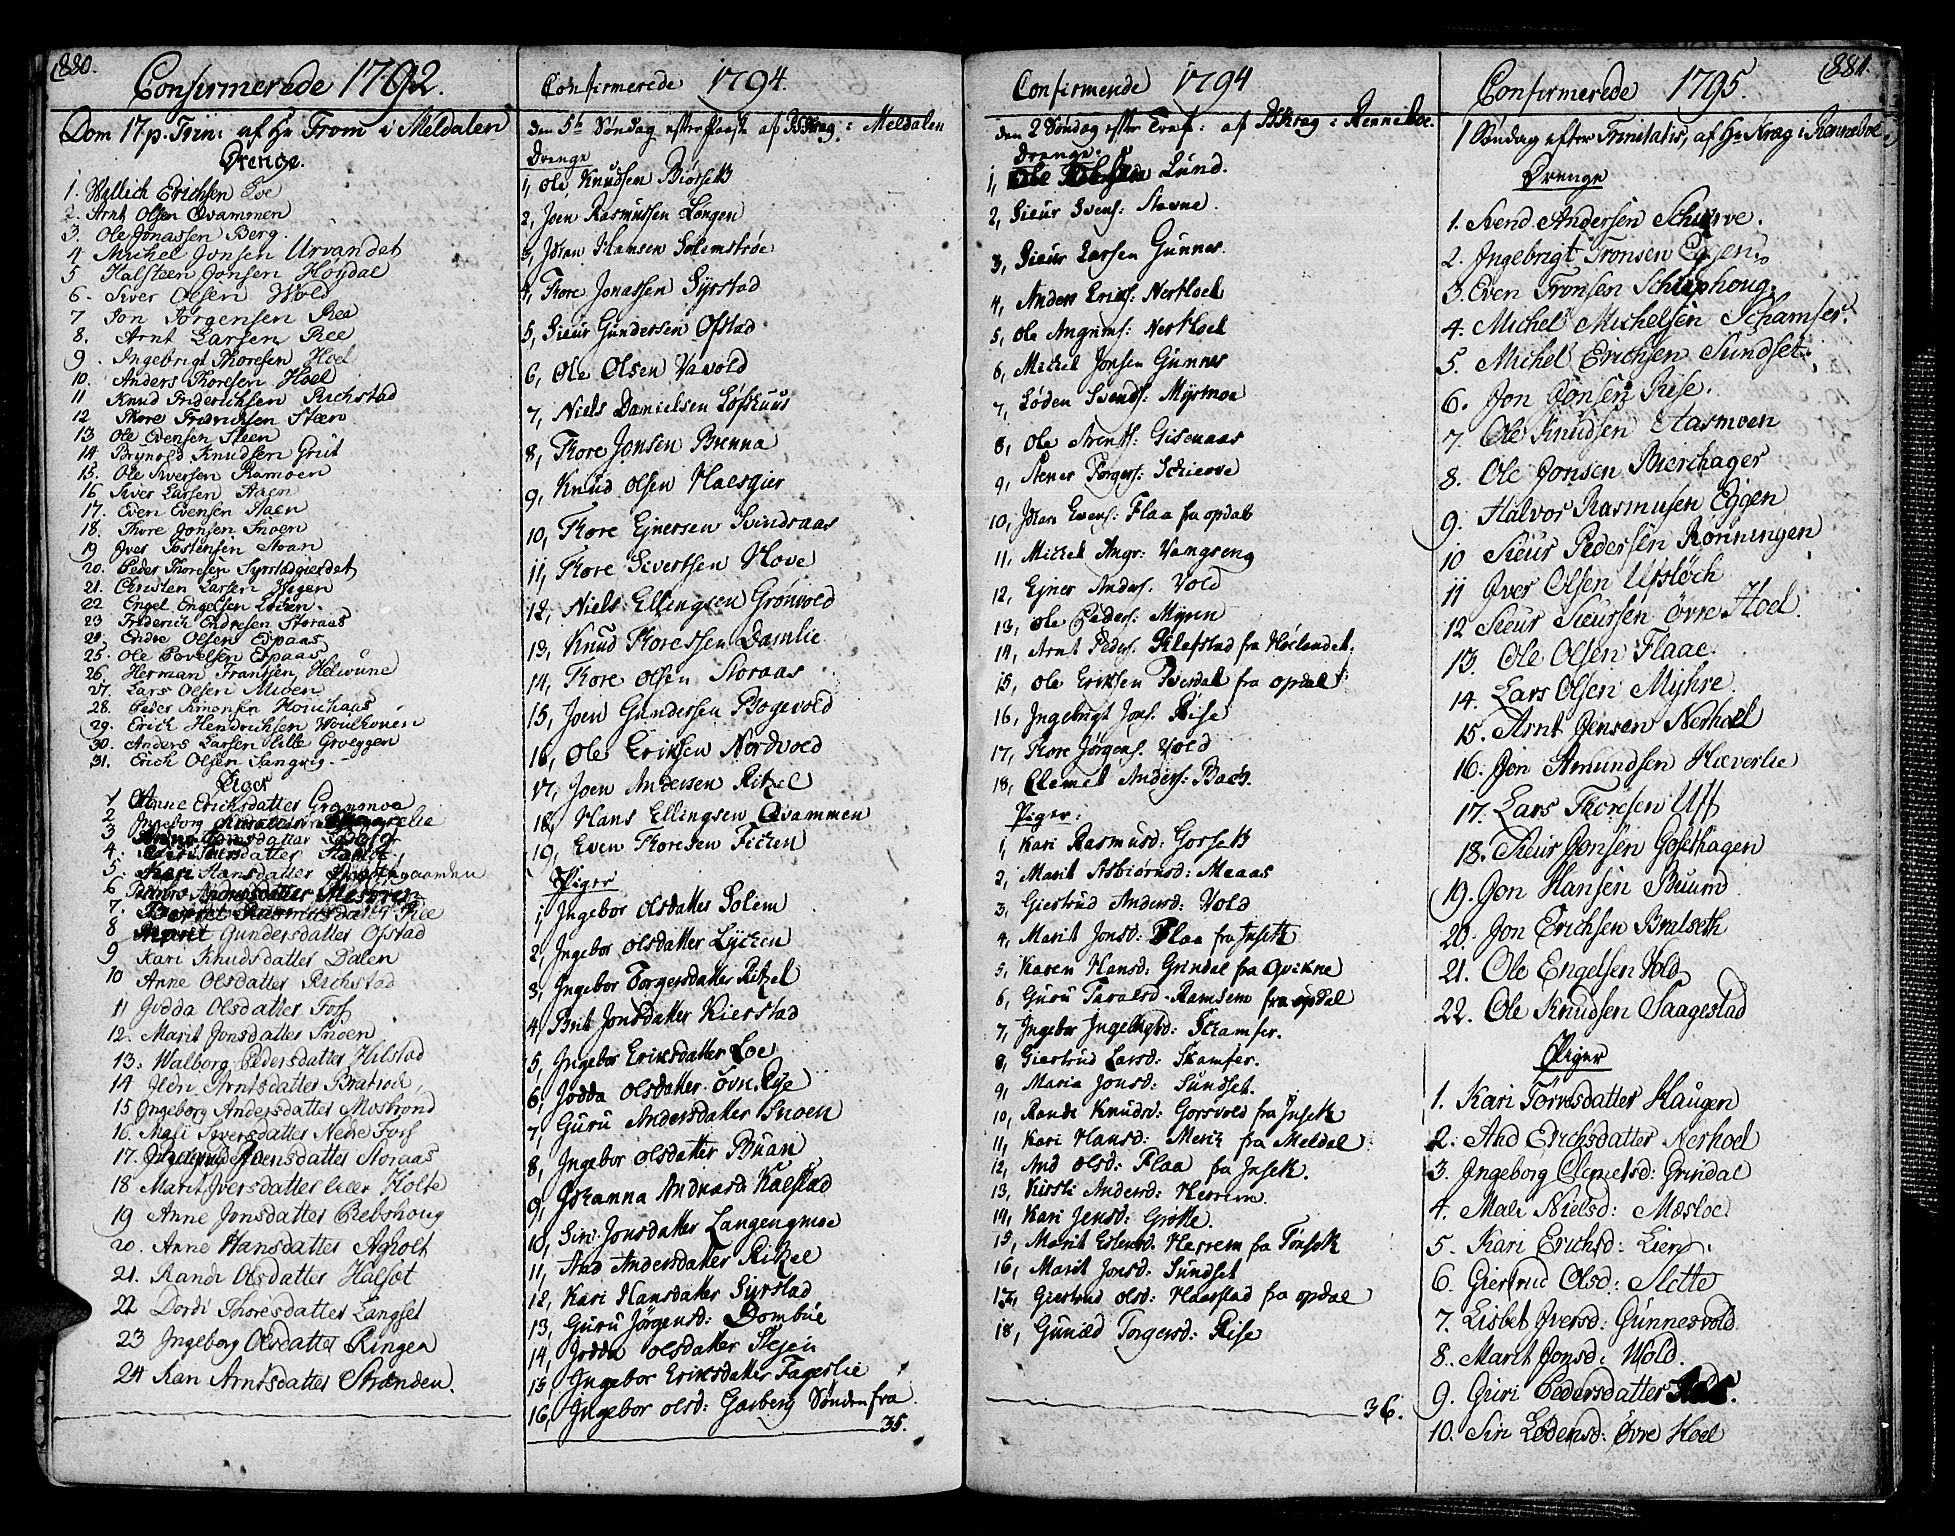 880.
Confirmerede 1792.
Dom 17 p. Trin: af Hr From i Meldalen
Drenge.
1. Wallich Erichsen Loe
2. Arnt Olsen Qvammen
3. Ole Jonassen Berg.
4 Michel Jonsen Urvandet
5 Halsteen Jonsen Høydal
6. Siver Olsen Wold
7 Jon Jørgensen Ree
8. Arnt Larsen Ree
9. Ingebrigt Thoresen Hoel
10. Anders Thoresen Hoel
11 Knud Friderichsen Richstad
12 Thore Fridrichsen Steen
13 Ole Evensen Steen
14 Brynold Knudsen Grut
15. Ole Iversen Ramoen
16 Siver Larsen Aaen
17. Even Evensen Staen
18. Thore Jonsen Snoen
19 Iver Tostensen Stran
20. Peder Thoresen Syrstadgierdet
21. Christen Larsen Wegen
22 Engel Engelsen Loen.
23 Friderich Endresen Storaas
24. Endre Olsen Espaas
25. Ole Povelsen Espaas
26. Herman Frantsen Helvune
27. Lars Olsen Moen
28. Peder Simonsen Houghaas
29. Erich Hendrichsen
30. Anders Larsen Lille Groeggen
31. Erich Olsen Sangvig
Piger
1 Anne Erichsdatter Granmoe
2 Ingeborg
3
4.
5. Kari Hansdatter
6
7. Rasmusdatter Ree
8 Marit Gundersdatter Ofstad
9 Kari Knudsdatter Dalen
10 Anne Olsdatter Richstad
11 Jodda Olsdatter Foss
12. Marit Jonsdatter Snoen
13. Walborg Pedersdatter Hilstad
14 Arntsdatter
15 Ingeborg Andersdatter Mostrønd
16. Mali Siversdatter Nedre Foss
17. Joensdatter Storaas
18 Marit Iversdatter Lille Holte
19 Anne Jonsdatter Rebshoug
20. Anne Hansdatter Agholt
21. Randi Olsdatter Halset
22 Dordi Thoresdatter Langset
23 Ingeborg Olsdatter Ringen
24 Kari Arntsdatter Strænden.
Confirmerede 1794.
den 5te Søndag efter Paask af Krag i Meldalen
Drenge
1, Ole Knudsen Biørseth
2, Joen Rasmussen Løngen
3, Johan Hansen Solemstrøe
4, Thore Jonassen Syrstad
5, Sivur Gundersen Ofstad
6, Ole Olsen Vavold
7, Niels Danielsen Løfshuus
8, Thore Jonsen Brenna
9, Knud Olsen Haesgier
10, Thore Ejnersen Svinsaas
11, Thore Sivertsen Hove
12, Niels Ellingsen Grønvold
13, Knud Thoressen Damlie
14, Thore Olsen Storaas
15, Joen Gundersen Bogevold
16, Ole Eriksen Nordvold
17, Joen Andersen Ritzel
18, Hans Ellingsen Qvammen
19, Even Thoresen Fichen
Piger
1, Ingebor Olsdatter Solem
2, Ingebor Olsdatter Lycken
3, Ingebor Torgersdatter Ritzel
4, Brit Jonsdatter Kierstad
5, Ingebor Eriksdatter Loe
6, Jodda Olsdatter Øvre Rye
7, Guru Andersdatter Snoen
8, Ingebor Olsdatter Buan
9, Johanna Andreasd: Kalstad
10, Siri Jonsdatter Langengmoe
11, Aad Andersdatter Ritzel
12, Kari Hansdatter Syrstad
13, Guru Jörgensd: Dombue
14, Jodda Olsdatter Stejen
15, Ingebor Eriksdatter Fagerlie
16, Ingebor Olsd: Garberg Sønden fra
35.
Confirmerede 1794
den 2 Søndag efter Trinit: af Krag i Renneboe.
Drenge.
1, Ole Lund.
2, Sivur Svens: Stavne.
3, Sivur Larsen Gunnes.
4, Anders Eriks: Nerhoel
5, Ole Angrims: Nerhoel
6, Michel Jonsen Gunnes
7, Løden Svends: Myrmoe
8, Ole Arents: Gisenaas
9, Stener Torgers: Schierve
10, Johan Evens: Flaa fra Opdal
11, Michel Angr: Vangseng
12, Ejner Anders. Vold
13, Ole Peders: Myren
14, Arnt Peders. Klefstad fra Høelandet.
15, Ole Eriksen Dverdal fra Opdal
16, Ingebrigt Jons. Rise
17, Thore Jørgens. Vold
18, Clemet Anders: Bach.
Piger:
1, Kari Rasmusd: Gorseth
2, Marit Asbiørnsd: Meaas
3, Giertrud Andersd: Vold
4, Marit Jonsd: Flaa fra Inseth
5, Karen Hansd: Grindal fra Qvikne
6, Guru Taralsd: Ramsem fra Opdal
7, Ingebor Ingebrigtsd: Skamfer.
8, Giertrud Larsd: Skamfer.
9, Maria Jonsd: Sundset.
10, Randi Knudsd: Gorsvold fra Inseth
11, Kari Hansd: Merich fra Meldal
12, And Olsd: Flaa fra Inseth.
13, Kirsti Andersd: Herrem.
14, Kari Jensd: Grøtte.
15, Marit Estensd. Herrem fra Inseth
16, Marit Jonsd: Sundset
17, Giertrud Olsd: Haarstad fra Opdal
18, Gunild Torgersd: Rise
36.
881.
Confirmerede 1795.
1 Søndag efter Trinitatis, af Hr Krag i Renneboe
Drenge
1. Svend Andersen Schierve.
2. Ingebrigt Tronsen Eggen
3. Even Tronsen Schiephoug.
4. Michel Michelsen Schamfer.
5. Michel Erichsen Sundset.
6. Jon Jonsen Rise.
7 Ole Knudsen Aasmoen
8. Ole Jonsen Bierchager
9. Halvor Rasmusen Eggen
10 Sivur Pedersen Rønningen
11 Iver Olsen Ufsløch
12 Sivur Sivursen Øvre Hoel.
13. Ole Olsen Flaae.
14. Lars Olsen Myhre
15. Arnt Jensen Nerhoel
16. Jon Amundsen Hæverlie
17. Lars Thoresen Uff
18. Sivur Jonsen Gosethagen
19. Jon Hansen Buum
20. Jon Erichsen Bralseth
21. Ole Engelsen Vold
22. Ole Knudsen Saagestad
Piger
1. Kari Torresdatter Haugen
2. And Erichsdatter Nerhoel
3. Ingeborg Clemetsd: Grindal
4. Mali Nielsd: Mæsloe
5. Kari Erichsd: Lien.
6. Giertrud Olsd: Slette
7. Lisbet Iversd: Gunnesvold.
8. Marit Jonsd: Wold.
9. Guri Pedersdatter
10. Siri Lodensd: Øvre Hoel